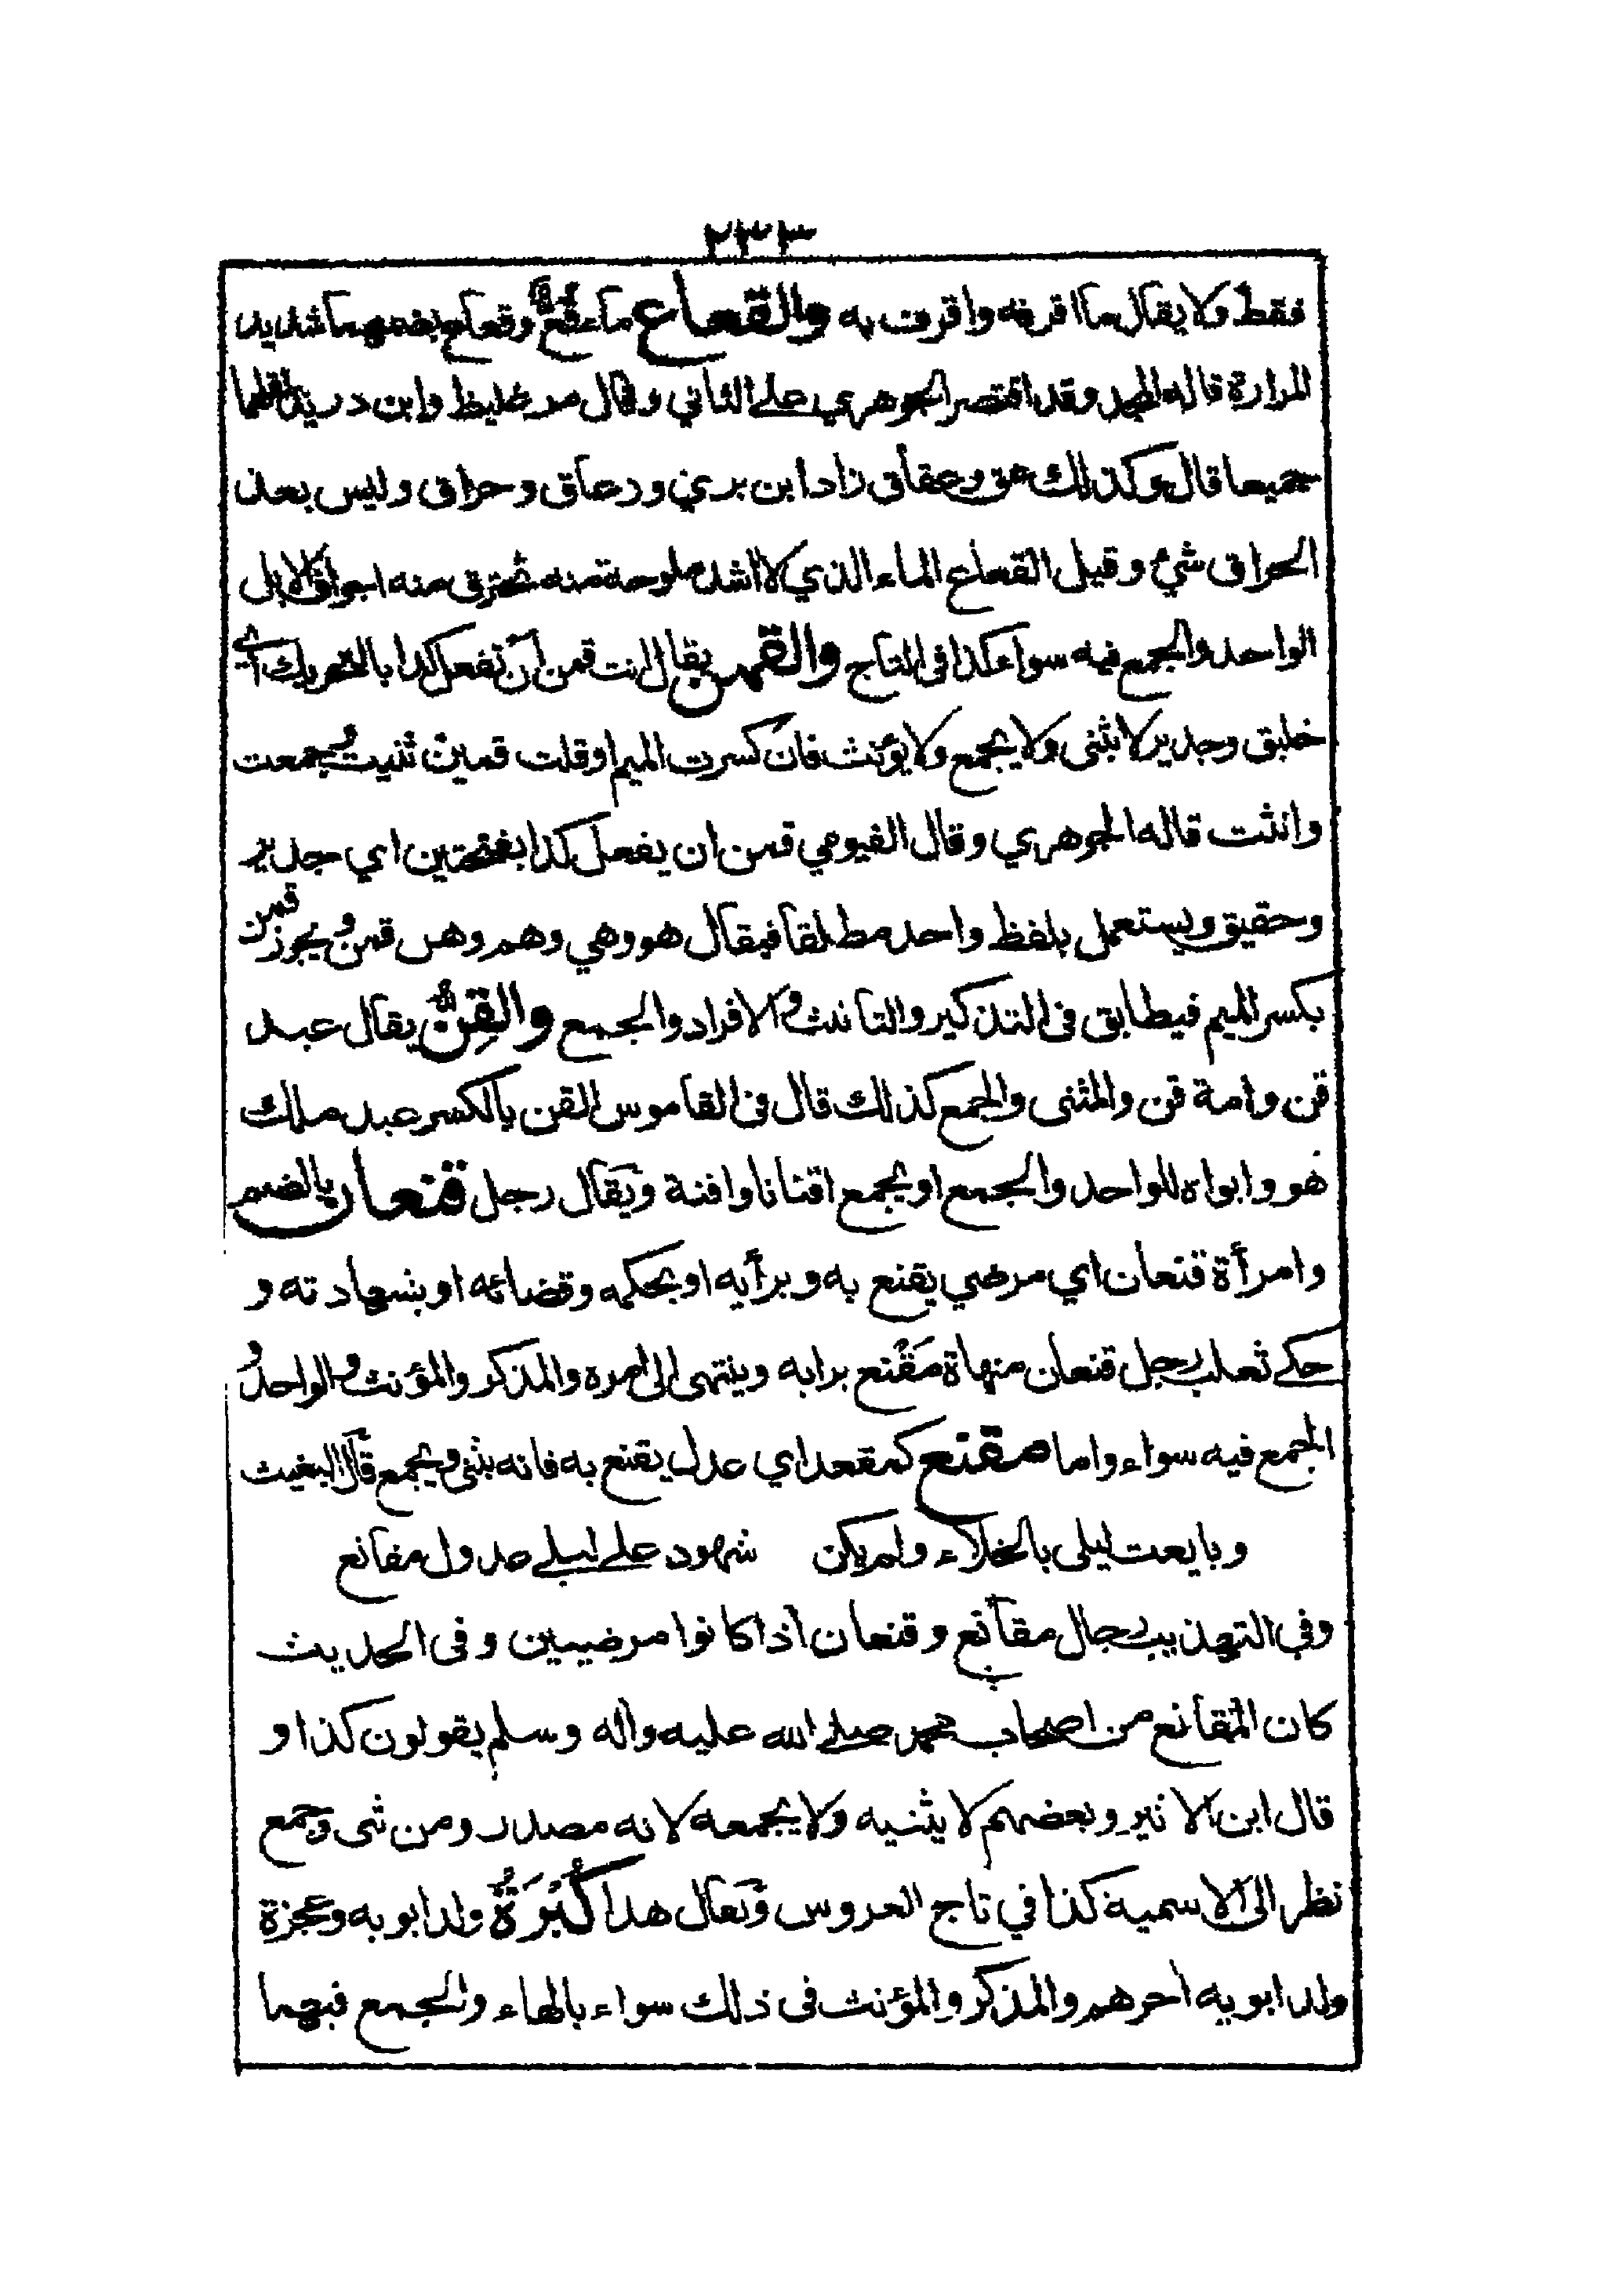 ٢٣٣
فقط ولا يقال ما اقرفه واقرف به والقعاع ماء قع وقعاع بضمهما شديد
المرارة قاله المجد وقد اقتصر الجوهري على الثاني وقال مر غليظ وابن دريد
جميعا قال وكذلك عق وعقاق زاد ابن بري وزعاق وحراق وليس بعد
الحراق شئ وقيل القعاع الماء الذي لا اشد ملوحة منه تحترق منه اجواف الابل
الواحد والجمع فيه سواء كذا في التاج والقمن يقال انت قمن ان تفعل كذا بالتحريك اي
خليق وجدير لا يثنى ولا يجمع ولا يؤنث فان كسرت الميم او قلت قمين ثنيت وجمعت
وانثت قاله الجوهري وقال الفيومي قمن ان يفعل كذا بفتحتين اي جدير
وحقيق ويستعمل بلفظ واحد مطلقا فيقال هو وهي وهم وهن قمن ويجوز قمن
بكسر الميم فيطابق في التذكير والتانيث والافراد والجمع والقِنّ يقال عبد
قن وامة قن والمثنى والجمع كذلك قال في القاموس القن بالكسر عبد ملك
هو وابواه للواحد والجمع او يجمع اقنانا واقنة ويقال رجل قنعان بالضم
وامرأة قنعان اي مرضي يقنع به وبرأيه او بحكمه وقضائه او بشهادته و
حكى ثعلب رجل قنعان منهاة مَقْنع برايه وينتهى الى امره والمذكر والمؤنث والواحد و
الجمع فيه سواء واما مقنع كمقعد اي عدل يقنع به فانه يثنى ويجمع قال البغيث
وبايعت ليلى بالخلاء ولم يكن شهود على ليلى عدول مقانع
وفي التهذيب رجال مقانع وقنعان اذا كانوا مرضيين وفى الحديث
كان المقانع من اصحاب محمد صلى الله عليه واله وسلم يقولون كذا و
قال ابن الاثير وبعضهم لا يثنيه ولا يجمعه لانه مصدر ومن ثنى وجمع
نظر الى الاسمية كذا في تاج العروس ويقال هذا كُبْرَةُ ولد ابويه وعجزة
ولد ابويه آخرهم والمذكر والمؤنث فى ذلك سواء بالهاء والجمع فيهما